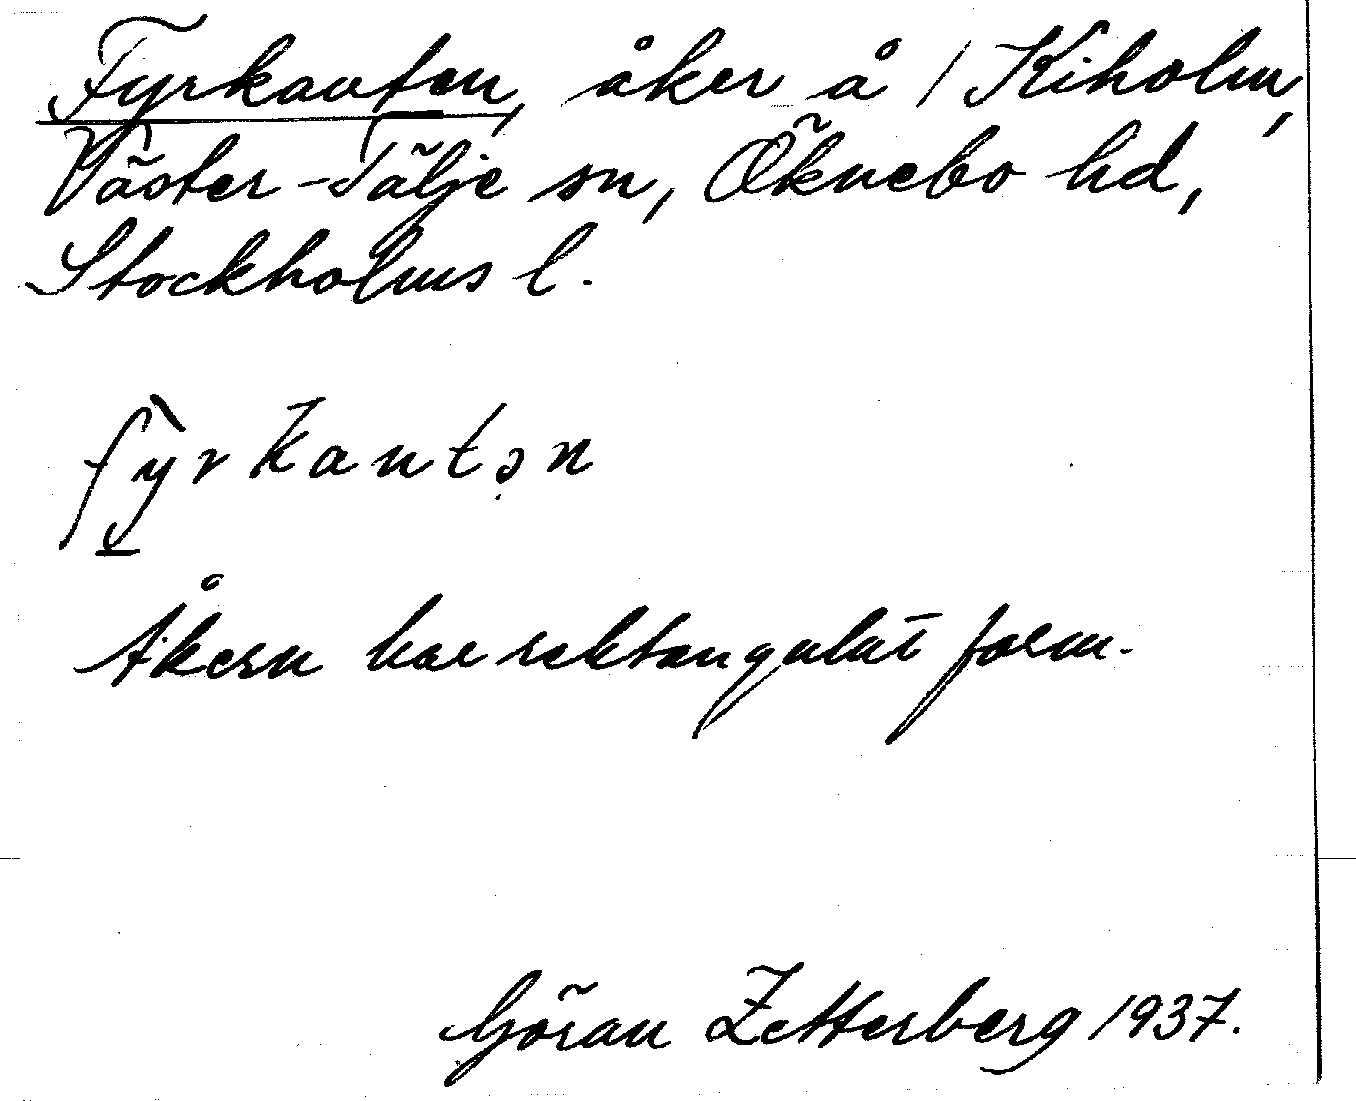 Fyrkanten, åker å / Kiholm,
Väster-Tälje sn, Öknebo hd,
Stockholms l.
fỳ̱rkantən
Åkern har rektangulär form.
Göran Zetterberg 1937.